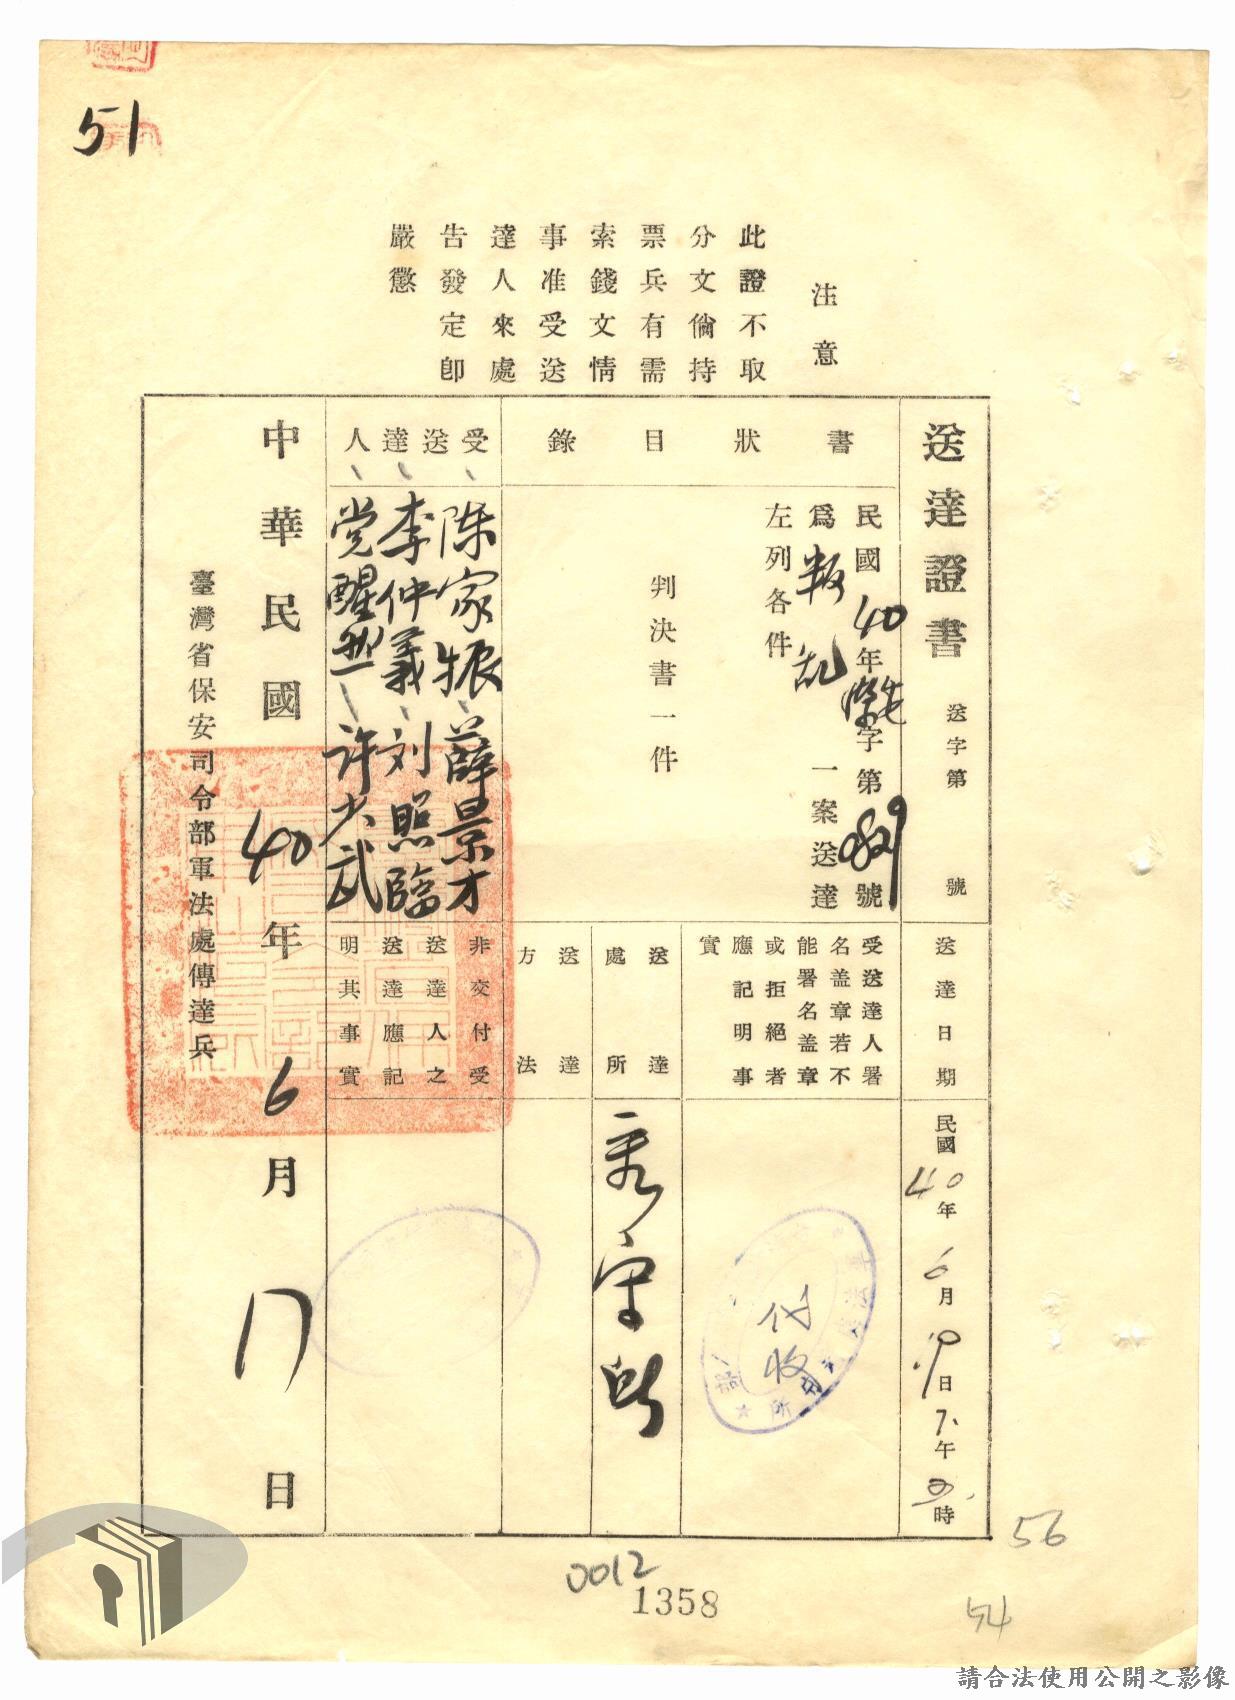 51
注意
此證不取
分文倘持
票兵有需
索錢文情
事准受送
達人來處
告發定即
嚴懲
送達證書
送字第 號
書狀目錄
民國40年 字第 號
為叛乱一案送達
左列各件
判決書一件
受送達人
陈家振 薛景才
李仲義 刘照臨
党醒然 许少武
送達日期
民國40年6月19日下午 時
受送達人署
名盖章若不
能署名盖章
或拒絕者
應記明事
實
代收
送達處所
看守所
送達方法
非交付受
送達人之
送達應記
明其事實
中華民國40年6月17日
臺灣省保安司令部軍法處傳達兵
56
0012
1358
54
請合法使用公開之影像